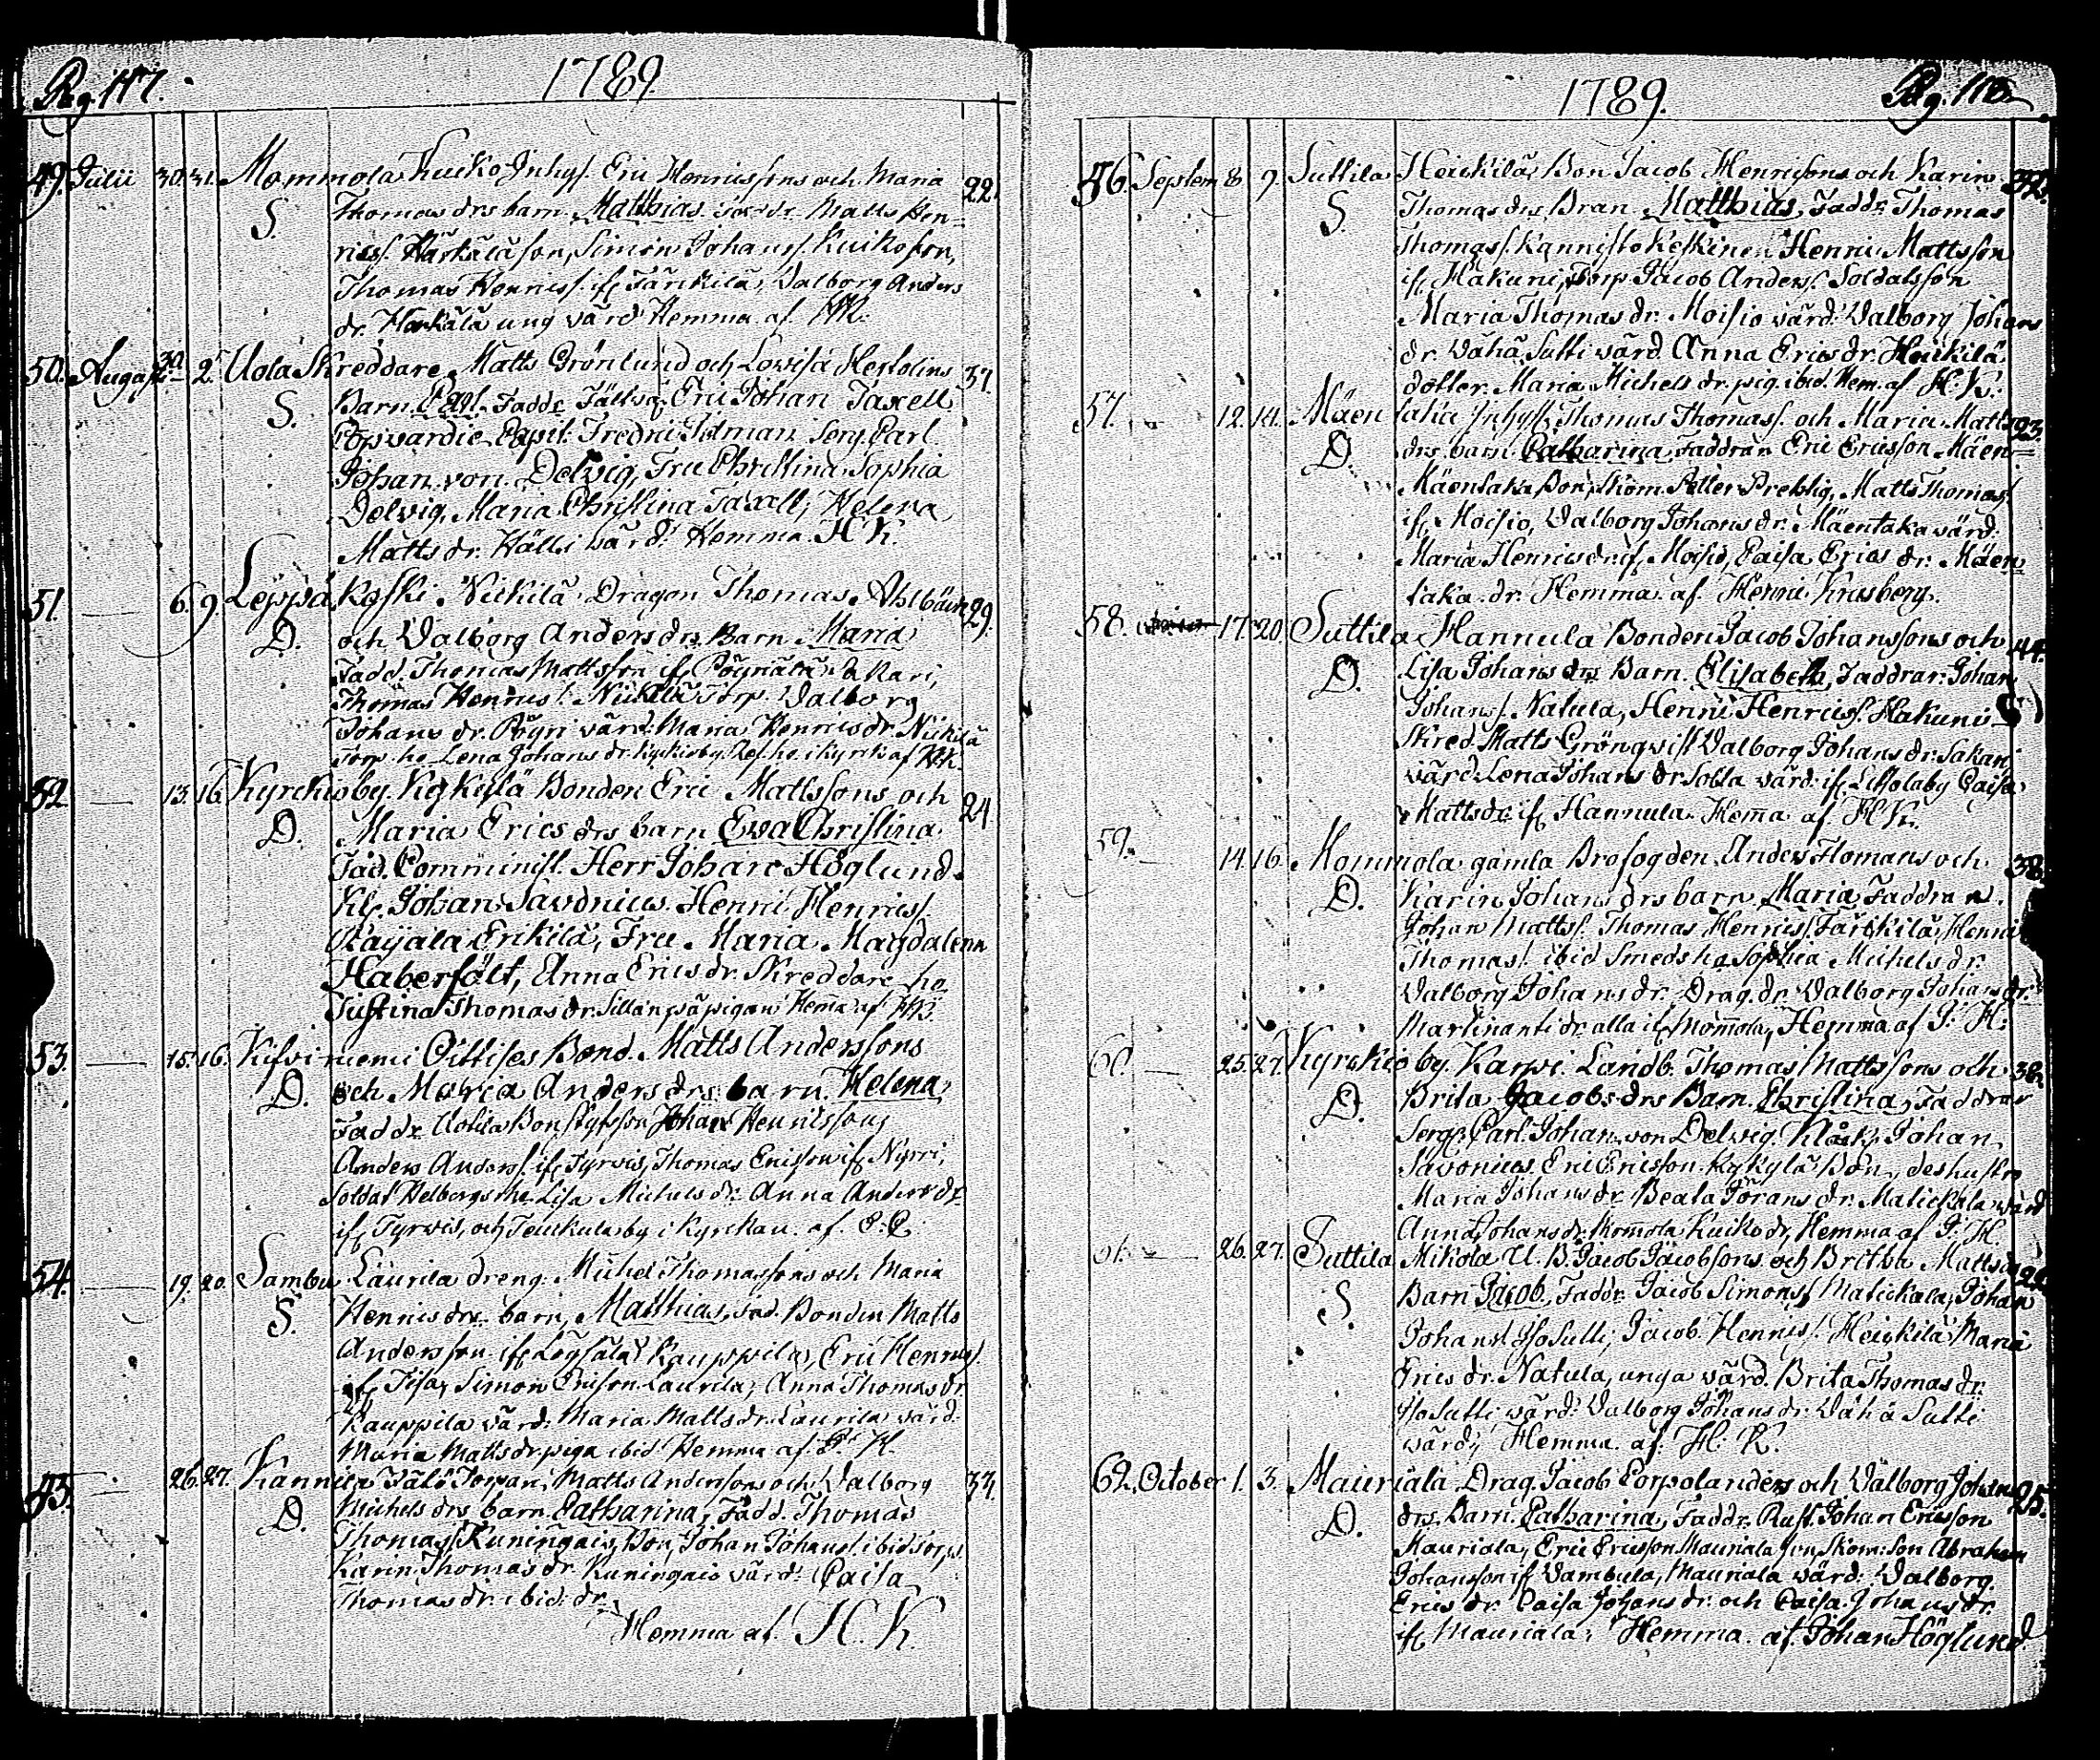 Pag. 117.
1789
49. Julii 30. 31. Mommola Kuiko Inhys. Eric Henricssons och Maria 22.
S. Thomas drs barn Matthias. Faddr. Matts Hen-
ricss. Härkälä son, Simon Johanss. Kuiko son,
Thomas Henricss. if Färkkilä, Valborg Anders
dr. Härkälä ung värd. Hemma af
50. Augusti 30. 2. Uola Skreddare Matts Grönlund och Lovisa Hertolins 37.
S. Barn Carl. Faddr Fältväb. Eric Johan Taxell
Fredric Tidman Serg. Carl
Johan von Delvig, Fru Christina Sophia
Delvig, Maria Christina Taxell, Helena
Matts dr. Hälli värd. Hemma. H K.
51. 6. 9. Leppäkoski Nickilä Dragon Thomas Ahlbäck 29.
D. och Valborg Anders drs Barn Maria
Fadd. Thomas Mattsson if
Thomas Henricss. Nickilä Torp. Valborg
Johans dr. värd. Maria Henrics dr. Nickilä
Torp. ho Lena Johans dr. i Kyrck. af
52. 13. 16. Kyrckioby Kykylä Bonden Eric Mattssons och 24.
D. Maria Erics drs barn Eva Christina
Fad. Comminist. Herr Johan Höglund.
Kl. Johan Savonius. Henric Henricss.
Erikilä, Fru Maria Magdalena
Haberfält, Anna Erics dr. Skreddare ho
Justina Thomas dr. pigan Hemma af
53. 15. 16. Kifviniemi Bond. Matts Anderssons
D. och Maria Anders drs barn Helena
Faddr Johan Henricssons
Anders Anderss. if Tyrvis, Thomas Ericsson if
Soldat ho Lisa Michels dr. Anna Anders dr
if Tyrvis, och by i Kyrckan. af.
54. 19. 20. Sambu Laurila dreng. Michel Thomassons och Maria
S. Henrics drs barn, Matthias, Fad. Bonden Matts
Andersson if Kauppila, Eric Henricss.
if Simon Ericsson Laurila, Anna Thomas dr.
Kauppila värd. Maria Matts dr. Laurila värd.
Maria Matts dr. piga ibid Hemma af
55. 26. 27. Kannila Torpar. Matts Anderssons och Valborg 33.
D. Michels drs barn Catharina, Fadd. Thomas
Thomass. Kuningais Bon, Johan Johanss. ibid torp.
Karin Thomas dr. Kuningais värd. Caisa
Thomas dr. ibid. dr.
Hemma af. H. K.
1789. Pag. 118
56. Septem 8. 9. Suttila Heickilä Bon Jacob Henricssons och Karin 32.
S. Thomas drs Bran Matthias, Faddr Thomas
Thomass. Kannisto Keskinen Henric Mattsson
if Hakuni, Torp. Jacob Anderss. Soldatsson
Maria Thomas dr. Moisio värd: Valborg Johans
dr. Vähä Sutti värd. Anna Erics dr. Heickilä
dotter. Maria Michels dr. pig. ibid. Hem. af H. K.
57. 12. 14. Mäentaka Inhys. Thomas Thomass. och Maria Matts 23.
D. drs barn Catharina Faddrar Eric Ericsson Mäen
Mäentaka Bon, Skom. Petter Matts Thomass.
if Moisio, Valborg Johans dr. Mäentaka värd.
Maria Henrics dr. if Moisio, Caisa Erics dr. Mäen
taka. dr. Hemma af Henric Krusberg.
58. 17. 20. Suttila Hannula Bonden Jacob Johanssons och 44.
D. Lisa Johans drs Barn. Elisabeth, Faddrar Johan
Johanss. Natula, Henric Henricss. Hakuni
Skred. Matts Grönqvist Valborg Johans dr. Sakari
värd. Lena Johans dr. värd. if by Caisa
Matts dr. if Hannula. Hemma af H K.
59. 14. 16. Mommola gamla Brofogden Anders Homans och 38.
D. Karin Johans drs barn Maria Faddran
Johan Mattss. Thomas Henricss. Färckilä, Henric
Thomass. ibid Smeds ho Sophia Michels dr.
Valborg Johans dr. Drag. dr. Valborg Johans dr.
Martinanti dr. alla if Mommola, Hemma af J. H.
60. 25. 27. Kyrckioby. Karvi. Landb. Thomas Mattssons och 38.
D. Brita Jacobs drs Barn. Christina, Faddrar
Serg. Carl Johan von Delvig. Klåck. Johan
Savonius. Eric Ericsson Kykylä Bon, des hustru
Maria Johans dr. Beata Jörans dr. Matickala värd
Anna Johans dr. Mommola Kuiko dr, Hemma af J. H.
61. 26. 27. Suttila Mikola U. B. Jacob Jacobssons och Britha Matts dr
S. Barn Jacob, Faddr. Jacob Simonss. Matickala, Johan
Johanss. Iso Sutti, Jacob Henricss. Heickilä Maria
Erics dr. Natula, unga värd. Brita Thomas dr.
Iso Sutti värd. Valborg Johans dr. Vähä Sutti
värd. Hemma. af. H. K.
62. October 1. 3. Mauriala Drag. Jacob Corpolanders och Valborg Johans 25.
D. drs. Barn. Catharina, Faddr. Rust. Johan Ericsson
Mauriala, Eric Ericsson Mauriala son, Skom: son Abraham
Johansson if Vambula, Mauriala värd: Valborg.
Erics dr. Caisa Johans dr. och Caisa Johans dr.
if Mauriala, Hemma af Johan Höglund